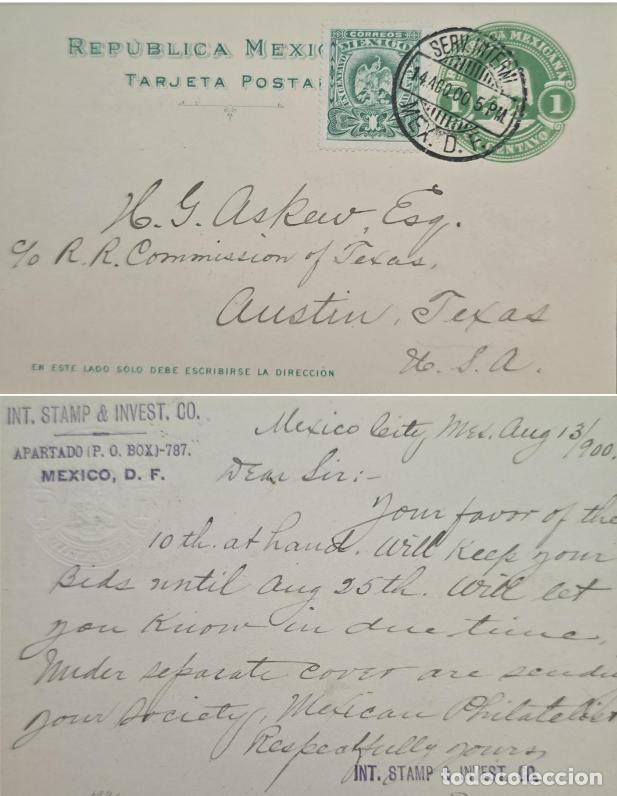 REPÚBLICA MEXIC
TARJETA POSTA
CORREOS
MEXICO
UN CENTAVO
1
SERV. INTERN
14.AGO.00 5-P.M
MEX. D.
A MEXICANA
1
CENTAVO
H. G. Askew, Esq.
c/o R. R. Commission of Texas,
Austin, Texas
U. S. A.
EN ESTE LADO SÓLO DEBE ESCRIBIRSE LA DIRECCIÓN
INT. STAMP & INVEST. CO.
APARTADO (P. O. BOX)-787.
MEXICO, D. F.
Mexico City, Mex. Aug 13/900.
Dear Sir:-
Your favor of the
10th. at hand. Will keep your
Bids until Aug 25th. Will let
you know in due time.
Under separate cover are sendg
your Society, Mexican Philatelist
Respectfully yours,
INT. STAMP & INVEST. CO.
todocoleccion